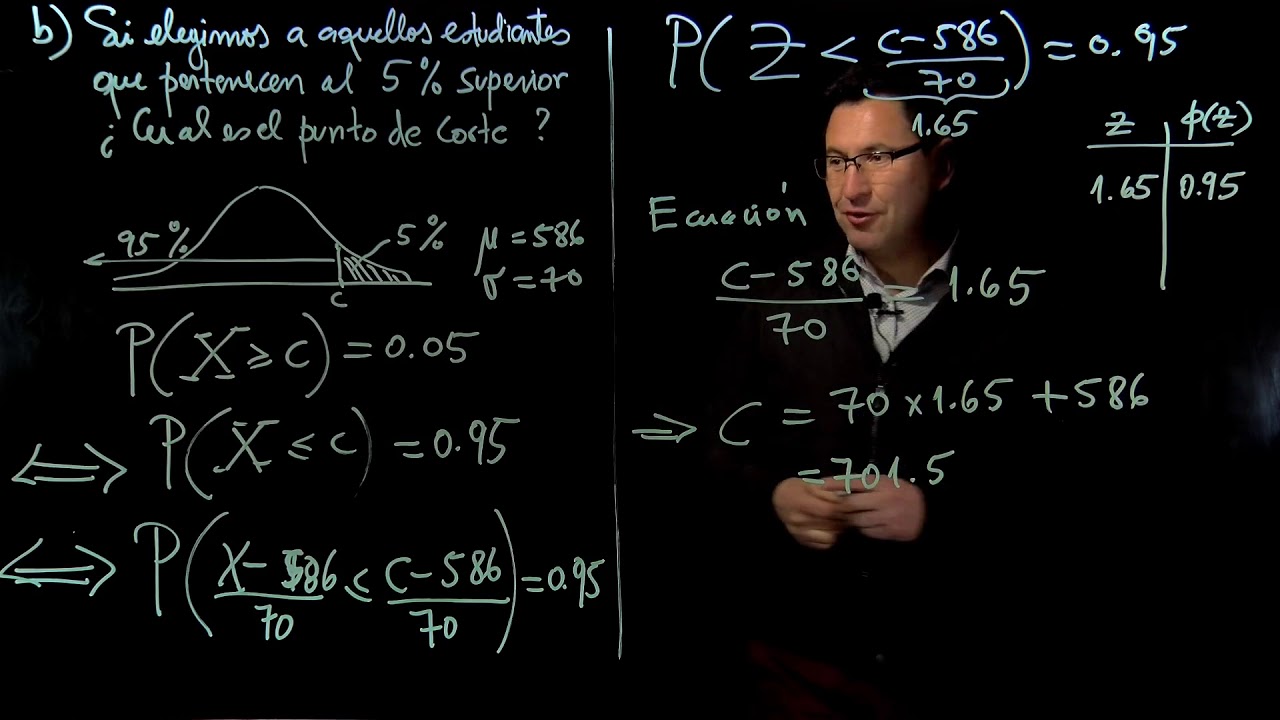 b) Si elegimos a aquellos estudiantes
que pertenecen al 5% superior
¿Cual es el punto de corte?
95%
5%
μ = 586
σ = 70
c
P(X ≥ c) = 0.05
⟺ P(X ≤ c) = 0.95
⟺ P((X - 586)/70 ≤ (c - 586)/70) = 0.95
P(Z < (c - 586)/70) = 0.95
1.65
z | φ(z)
1.65 | 0.95
Ecuación
(c - 586)/70 = 1.65
⇒ c = 70 × 1.65 + 586
= 701.5